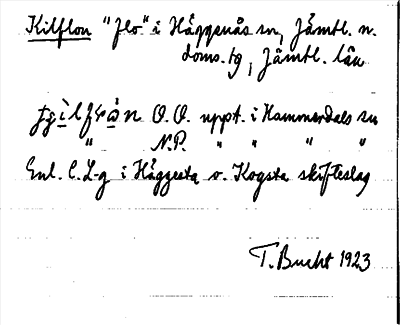 Kilflon "flo" i Häggenås sn, Jämtl. n.
doms.tg, Jämtl. län
O.O. uppt. i Hammerdals sn
" N.P. " " " "
Enl. C.L-g i Häggesta o. Kogsta skifteslag
T. Bucht 1923